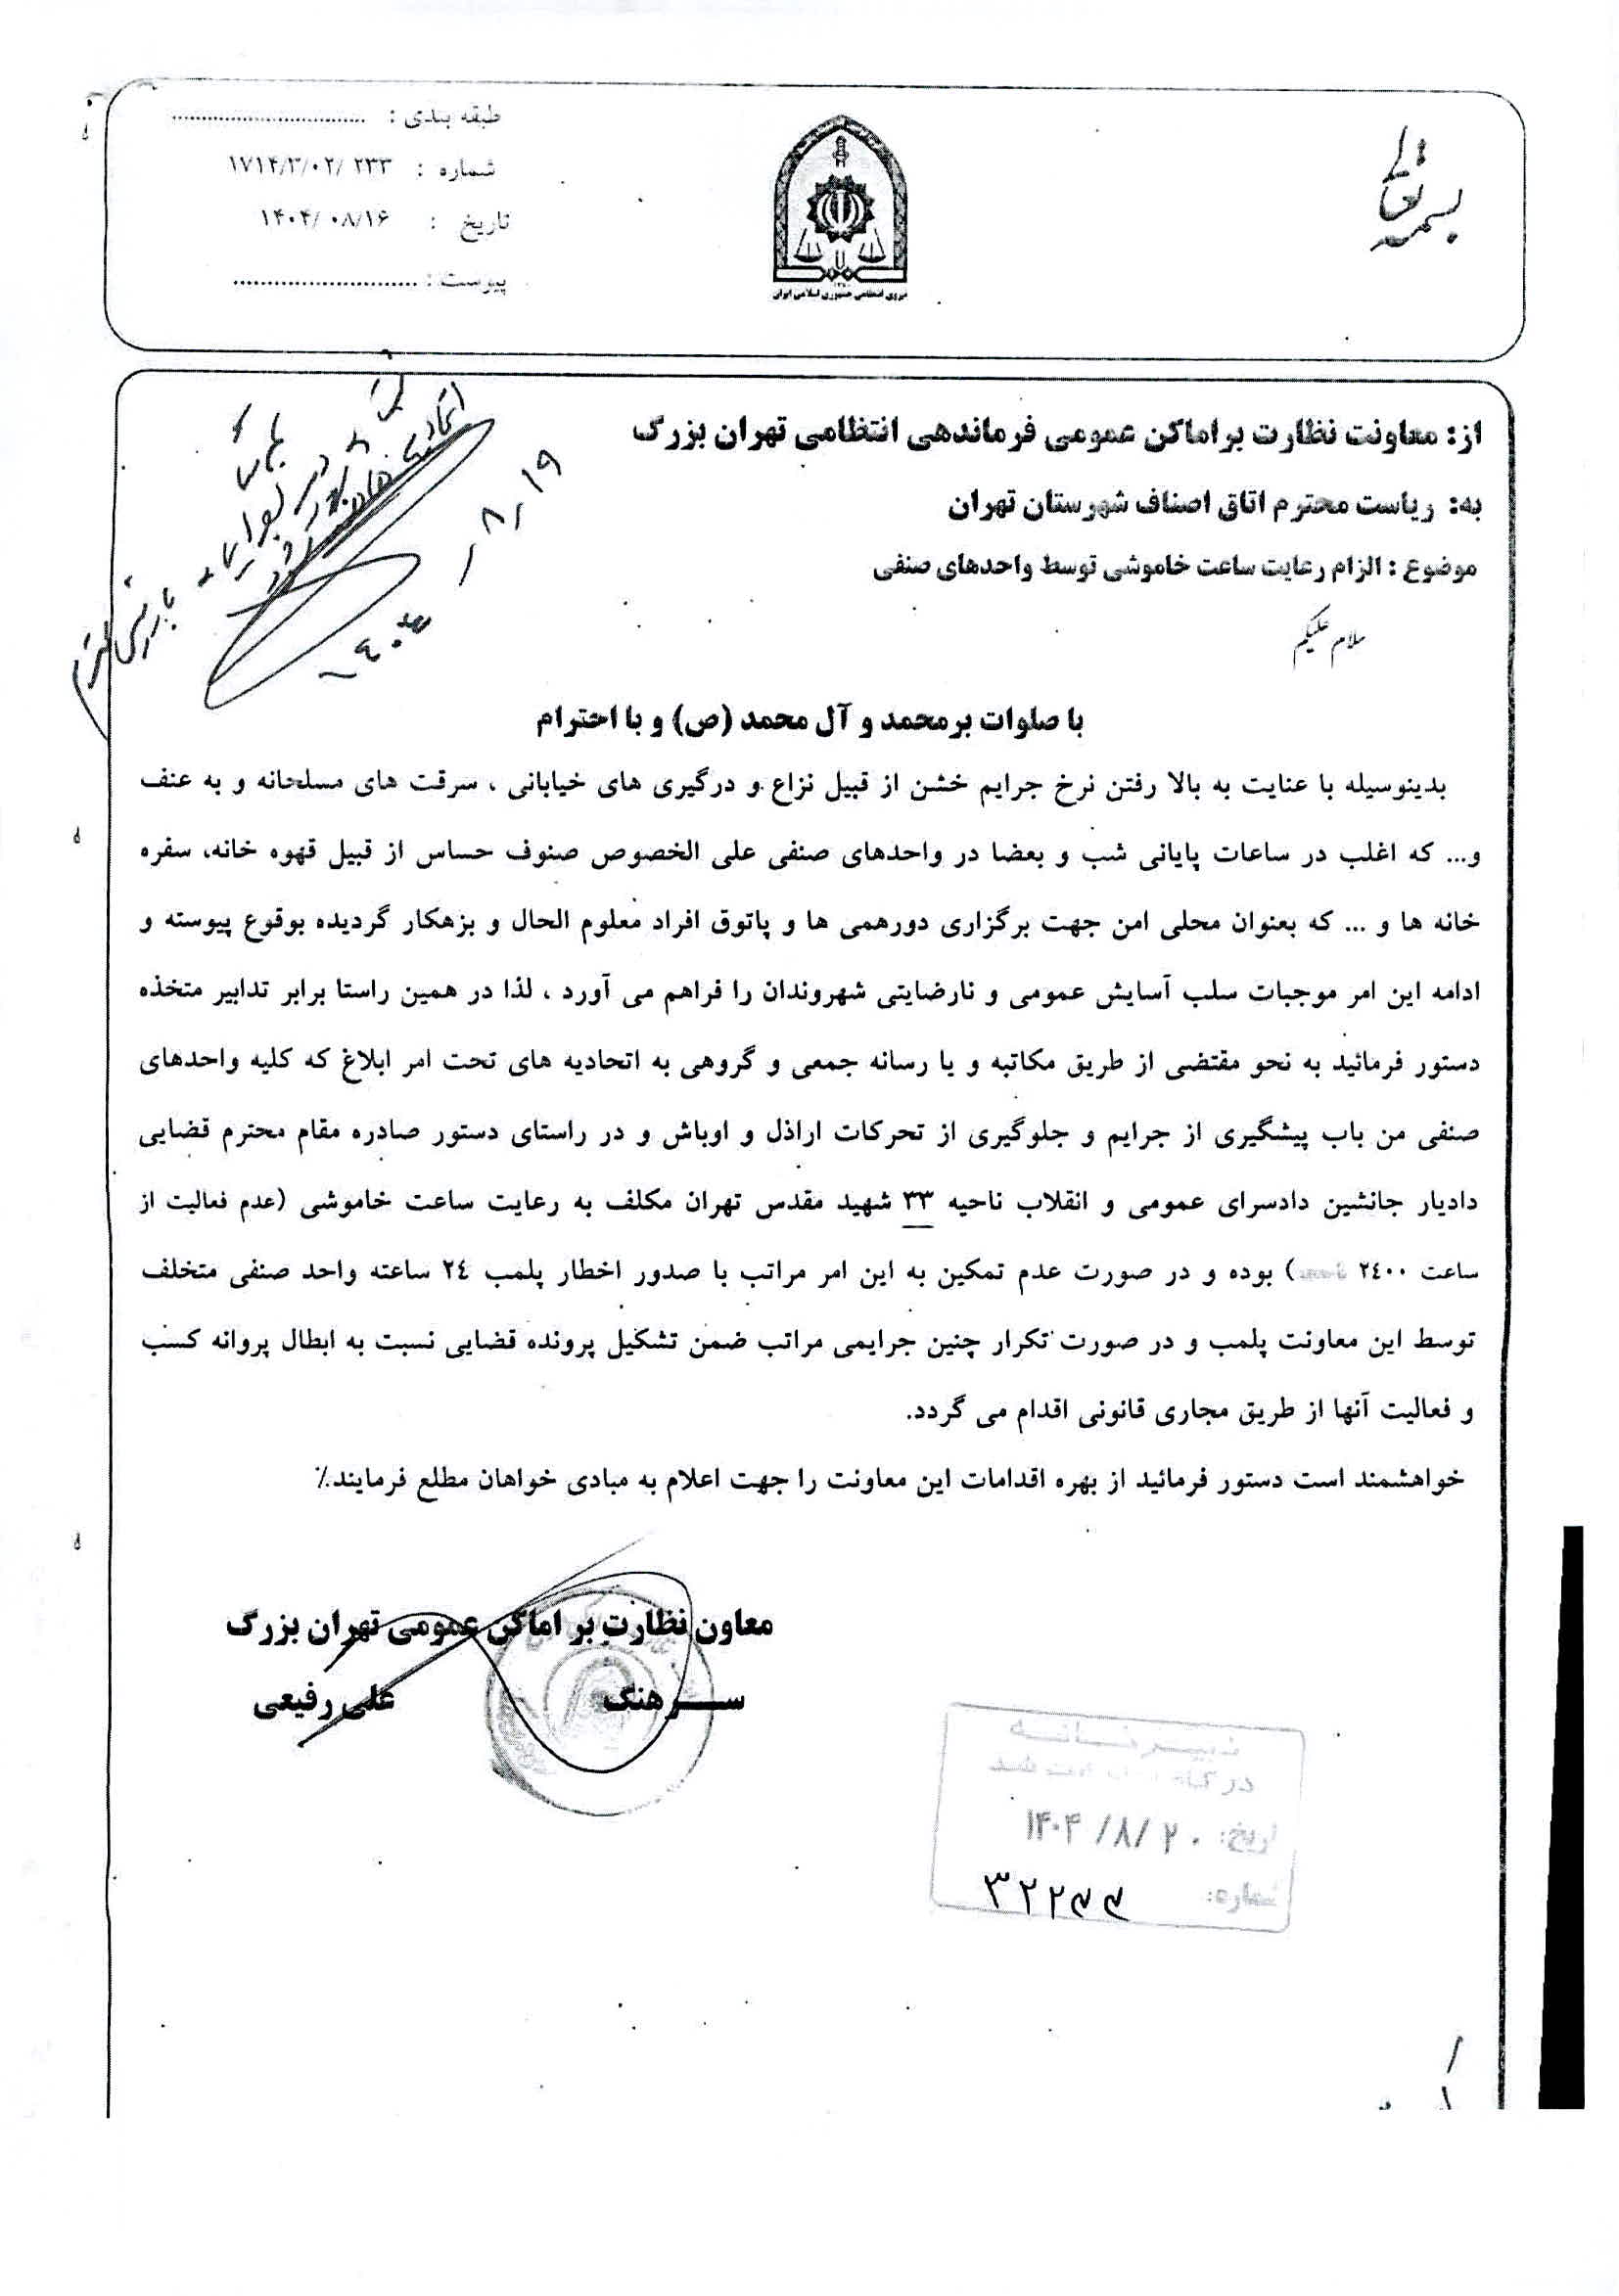 بسمه تعالی
طبقه بندی : ................................
شماره : ۱۷۱۴/۳/۰۲/ ۲۳۳
تاریخ : ۱۴۰۴/ ۰۸/۱۶
پیوست : ................................
نیروی انتظامی جمهوری اسلامی ایران
از: معاونت نظارت بر اماکن عمومی فرماندهی انتظامی تهران بزرگ
به: ریاست محترم اتاق اصناف شهرستان تهران
موضوع : الزام رعایت ساعت خاموشی توسط واحدهای صنفی
سلام علیکم
بازرسی محترم
۱۴۰۴ - ۸ر۱۹
با صلوات بر محمد و آل محمد (ص) و با احترام
بدینوسیله با عنایت به بالا رفتن نرخ جرایم خشن از قبیل نزاع و درگیری های خیابانی ، سرقت های مسلحانه و به عنف
و... که اغلب در ساعات پایانی شب و بعضا در واحدهای صنفی علی الخصوص صنوف حساس از قبیل قهوه خانه، سفره
خانه ها و ... که بعنوان محلی امن جهت برگزاری دورهمی ها و پاتوق افراد معلوم الحال و بزهکار گردیده بوقوع پیوسته و
ادامه این امر موجبات سلب آسایش عمومی و نارضایتی شهروندان را فراهم می آورد ، لذا در همین راستا برابر تدابیر متخذه
دستور فرمائید به نحو مقتضی از طریق مکاتبه و یا رسانه جمعی و گروهی به اتحادیه های تحت امر ابلاغ که کلیه واحدهای
صنفی من باب پیشگیری از جرایم و جلوگیری از تحرکات اراذل و اوباش و در راستای دستور صادره مقام محترم قضایی
دادیار جانشین دادسرای عمومی و انقلاب ناحیه ۳۳ شهید مقدس تهران مکلف به رعایت ساعت خاموشی (عدم فعالیت از
ساعت ۲٤۰۰ ) بوده و در صورت عدم تمکین به این امر مراتب با صدور اخطار پلمب ۲٤ ساعته واحد صنفی متخلف
توسط این معاونت پلمب و در صورت تکرار چنین جرایمی مراتب ضمن تشکیل پرونده قضایی نسبت به ابطال پروانه کسب
و فعالیت آنها از طریق مجاری قانونی اقدام می گردد.
خواهشمند است دستور فرمائید از بهره اقدامات این معاونت را جهت اعلام به مبادی خواهان مطلع فرمایند٪
معاون نظارت بر اماکن عمومی تهران بزرگ
سرهنگ علی رفیعی
دبیرخانه
شد
تاریخ: ۱۴۰۴ /۸/ ۲۰
شماره: ۳۲۲۴۴